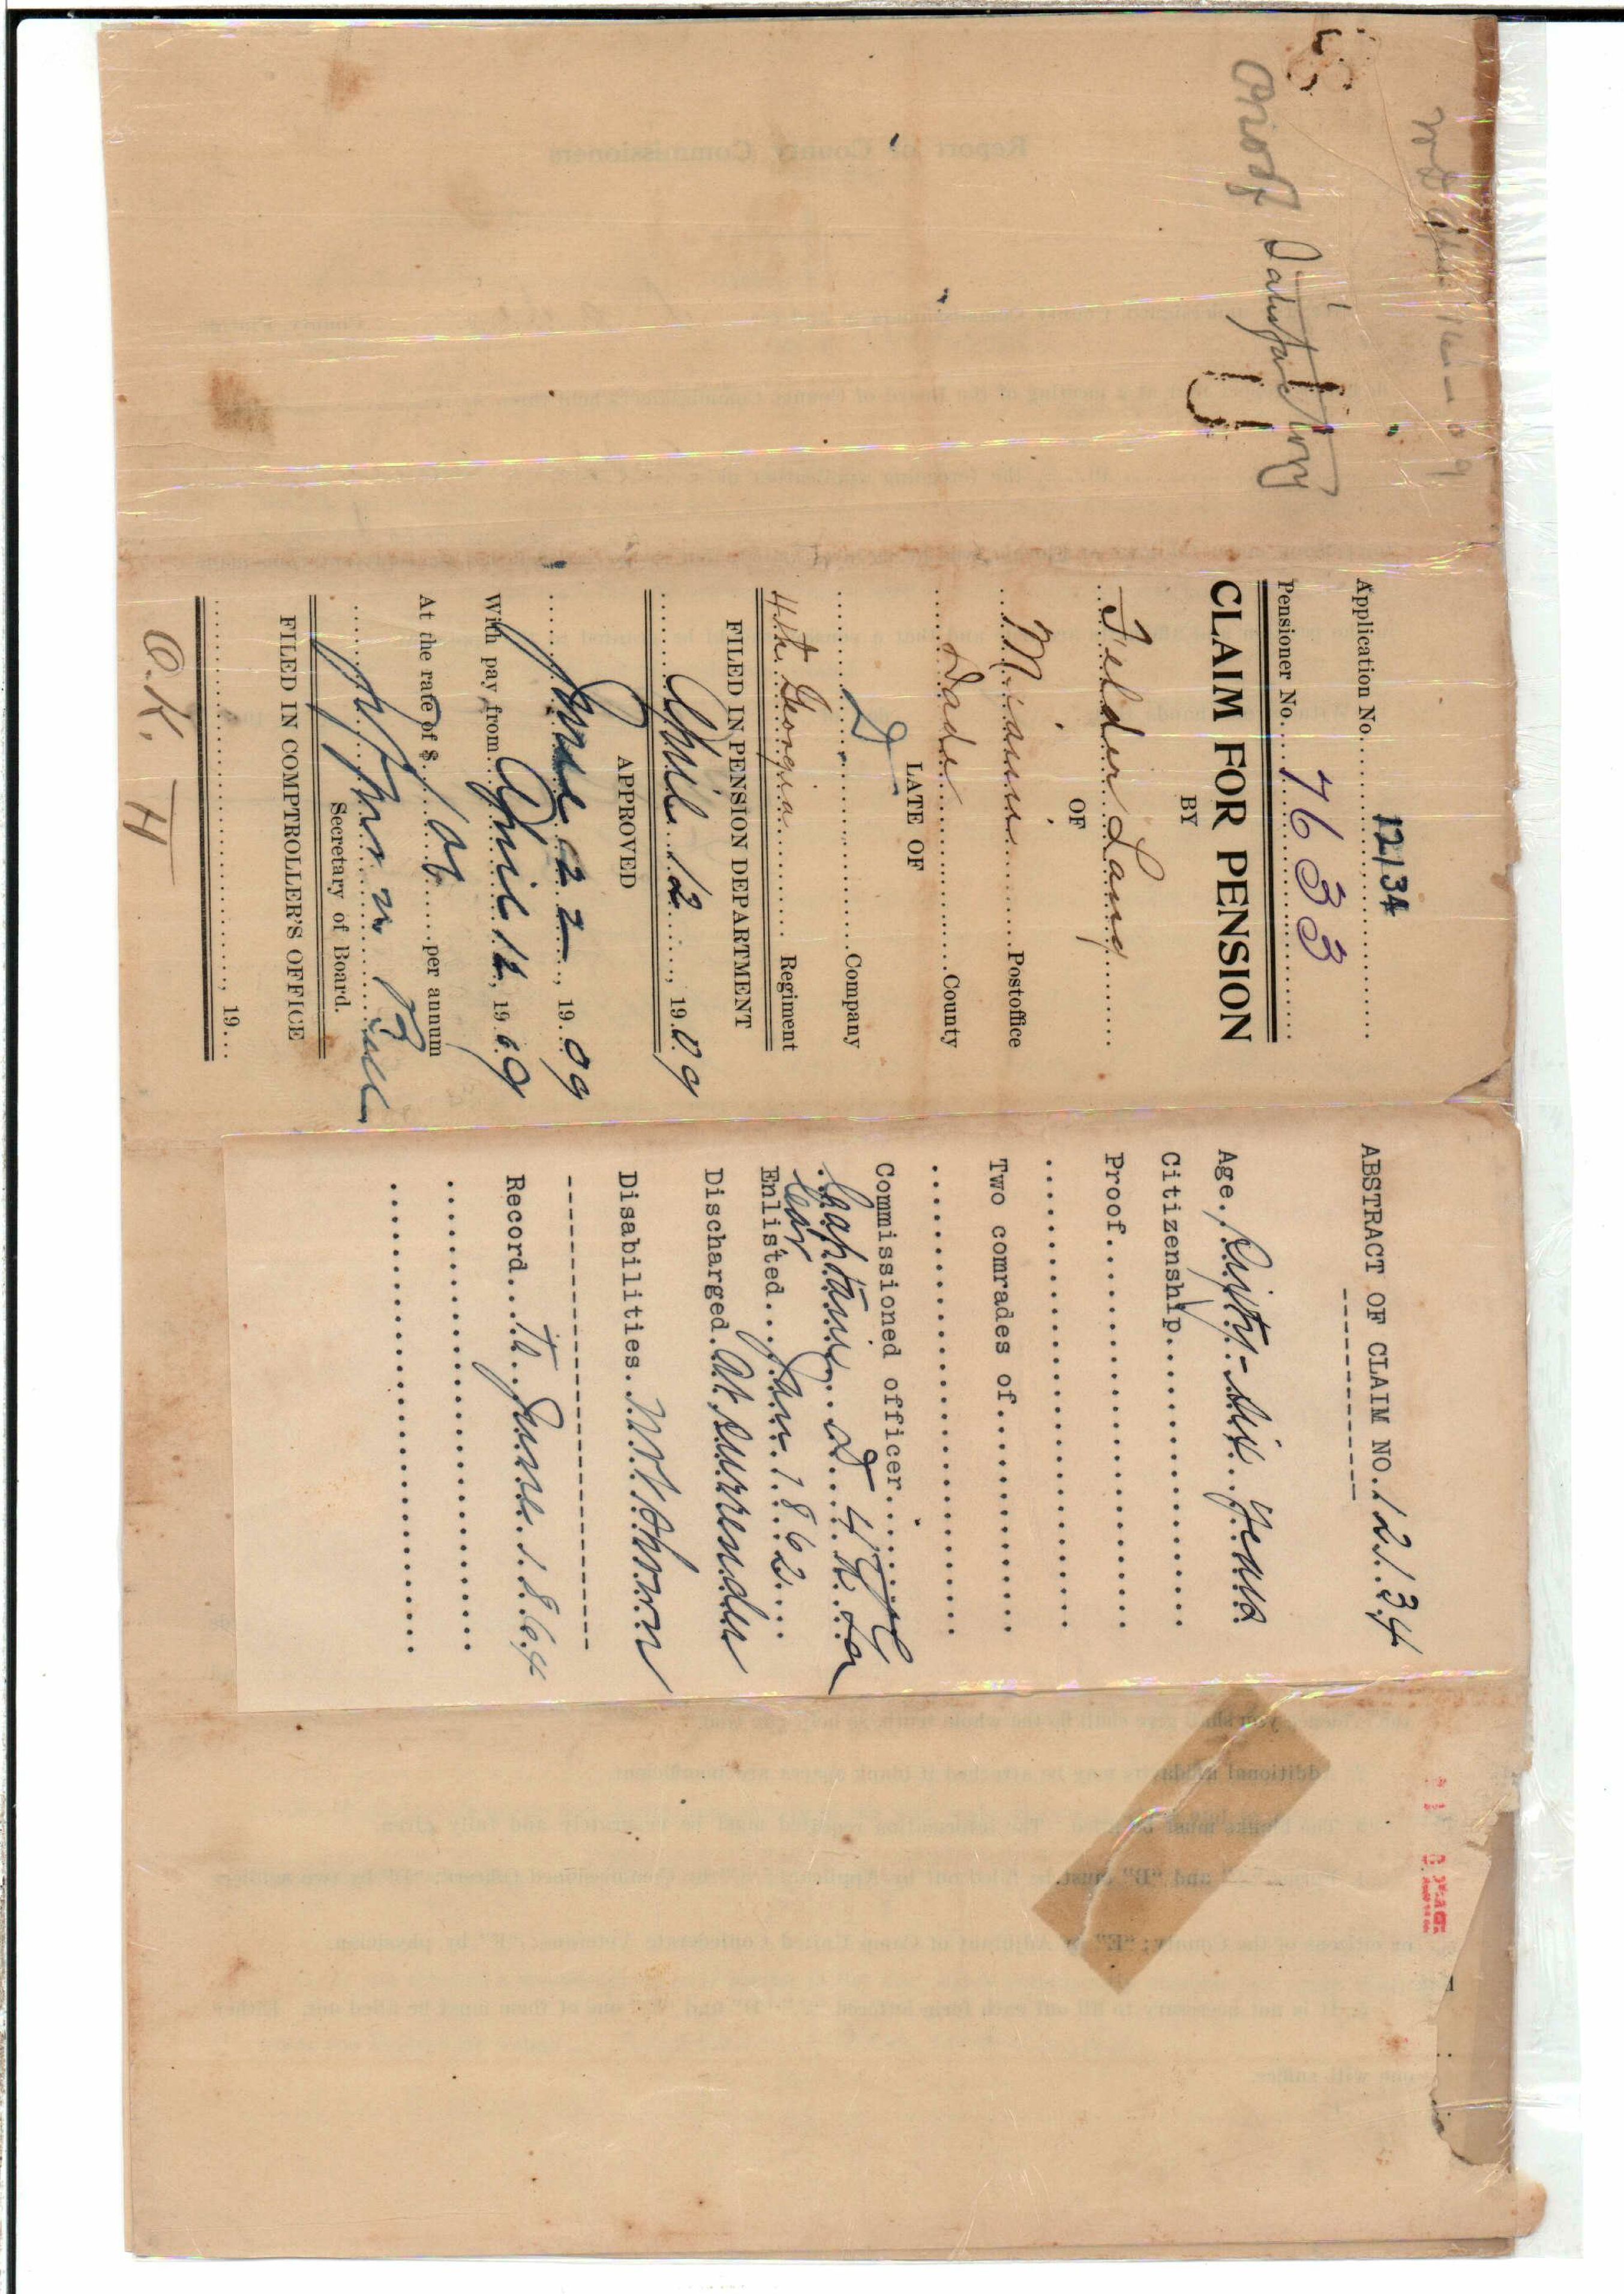 Proof Satisfactory
Application No. 12134
Pensioner No. 7633
CLAIM FOR PENSION
BY
Felder Lang
OF
Miami Postoffice
Dade County
LATE OF
D Company
4th Georgia Regiment
FILED IN PENSION DEPARTMENT
April 12, 1909
APPROVED
June 22, 1909
With pay from April 12, 1909
At the rate of $ 100 per annum
Secretary of Board.
FILED IN COMPTROLLER'S OFFICE
, 19
O.K. H
ABSTRACT OF CLAIM NO. 12134
Age. Sixty-six years
Citizenship
Proof
Two comrades of
Commissioned officer
Captain D 4th Ga
Cav
Enlisted Jan 1862
Discharged. At surrender
Disabilities. Not shown
Record. To June 1864